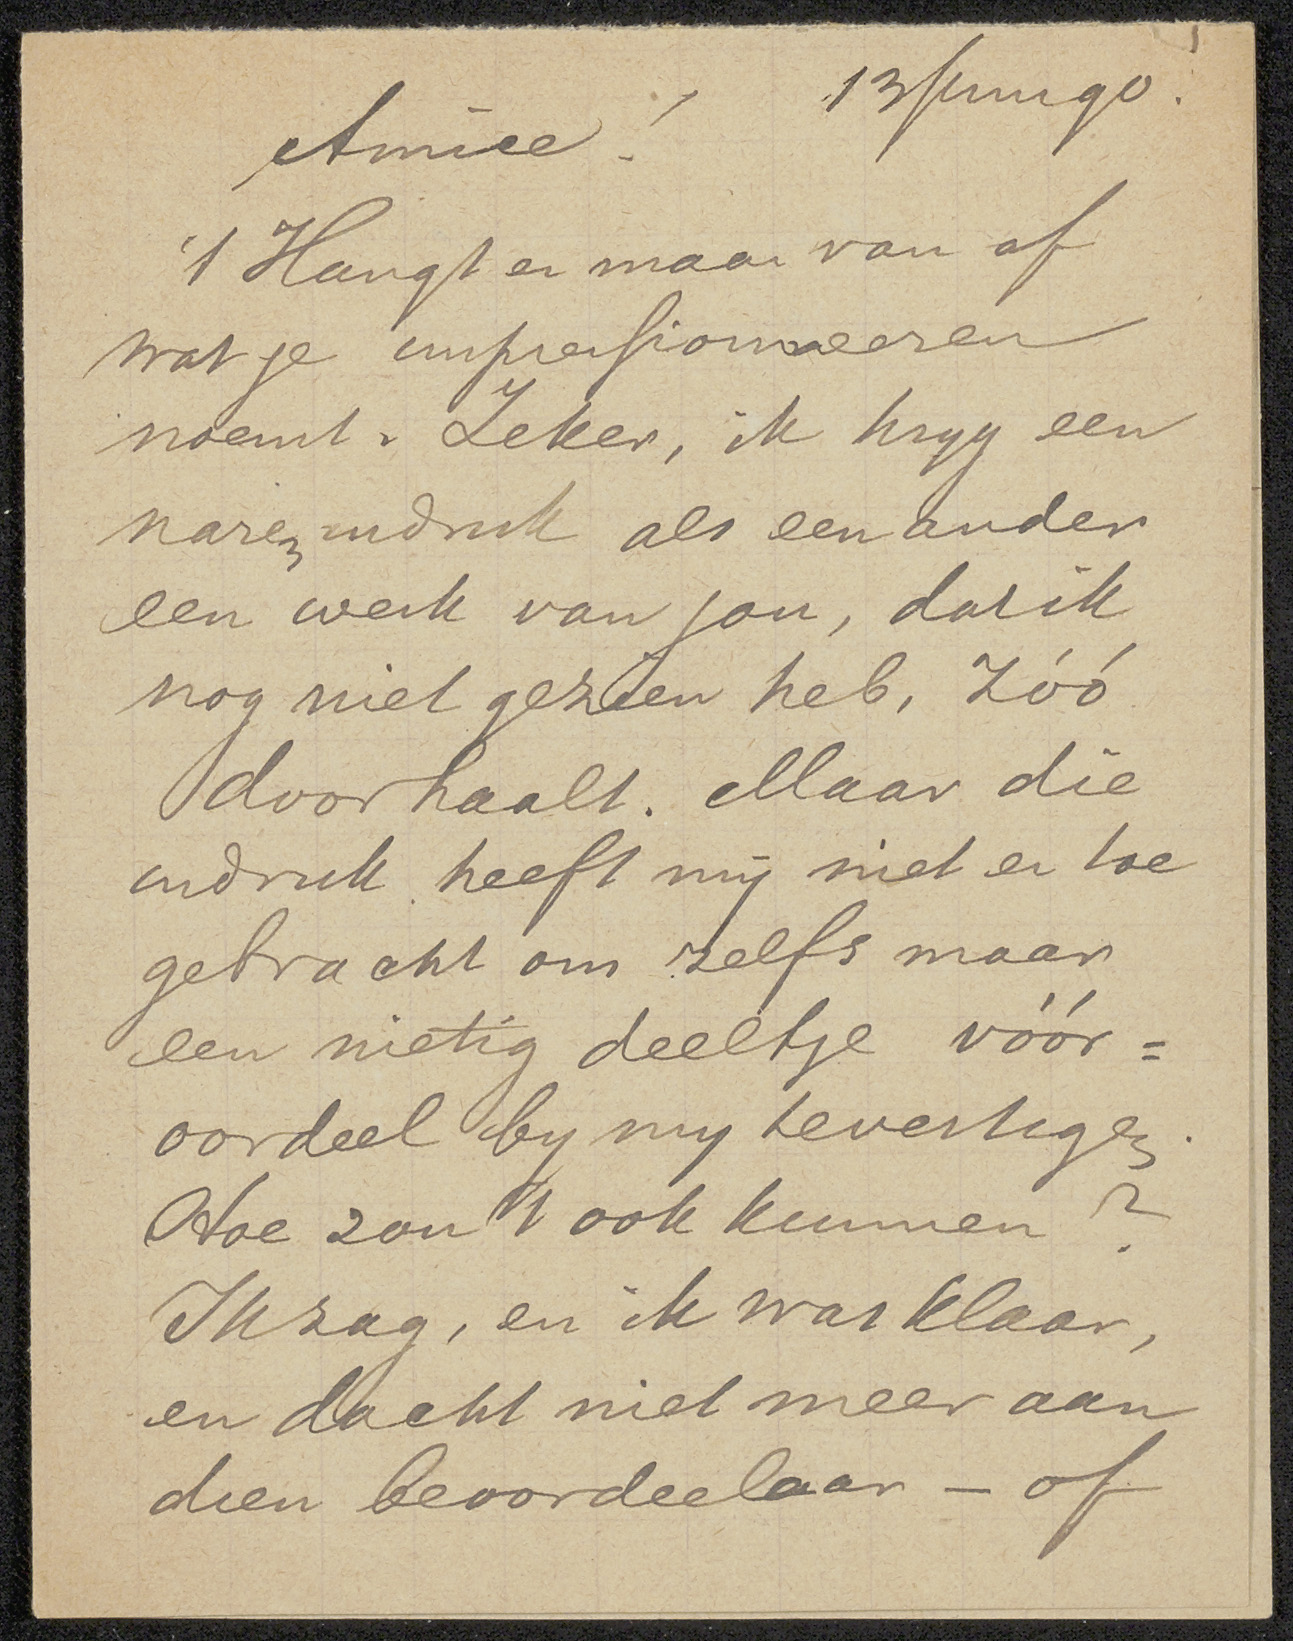 13 Juni 90.
Amice!
't Hangt er maar van af
wat je impressionneeren
noemt. Zeker, ik kryg een
naren indruk als een ander
een werk van jou, dat ik
nog niet gezien heb, zóó
doorhaalt. Maar die
indruk heeft mij niet er toe
gebracht om zelfs maar
een nietig deeltje vóór=
oordeel by my te vestigen.
Hoe zou 't ook kunnen?
Ik zag, en ik was klaar,
en dacht niet meer aan
dien beoordeelaar — of